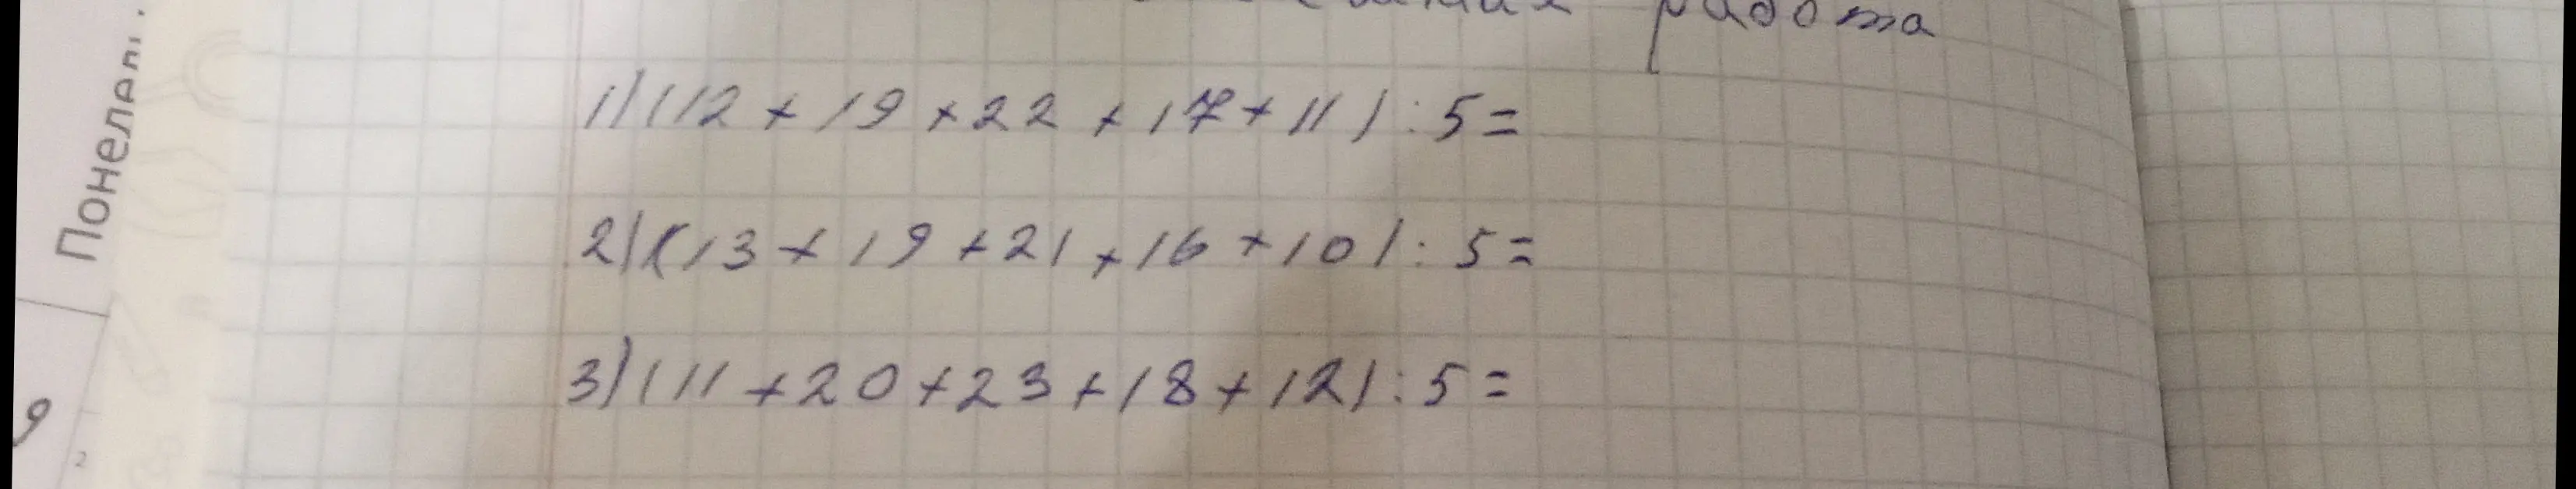 работа
1) (12 + 19 + 22 + 17 + 11) : 5 =
2) (13 + 19 + 21 + 16 + 10) : 5 =
3) (11 + 20 + 23 + 18 + 12) : 5 =
9
2